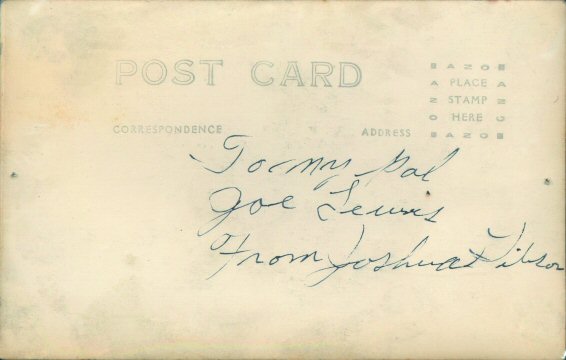 POST CARD
AZO
A PLACE A
Z STAMP Z
O HERE O
AZO
CORRESPONDENCE
ADDRESS
To my Pal
Joe Lewis
From Joshua Gibson